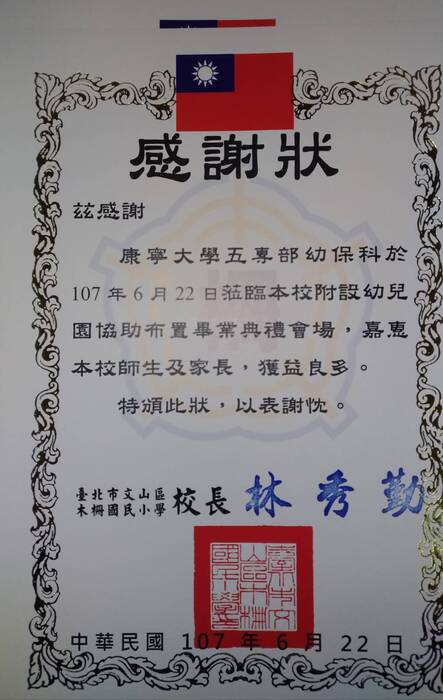 感謝狀
茲感謝
康寧大學五專部幼保科於
107年6月22日蒞臨本校附設幼兒
園協助布置畢業典禮會場，嘉惠
本校師生及家長，獲益良多。
特頒此狀，以表謝忱。
臺北市文山區
木柵國民小學 校長 林秀勤
中華民國 107 年 6 月 22 日